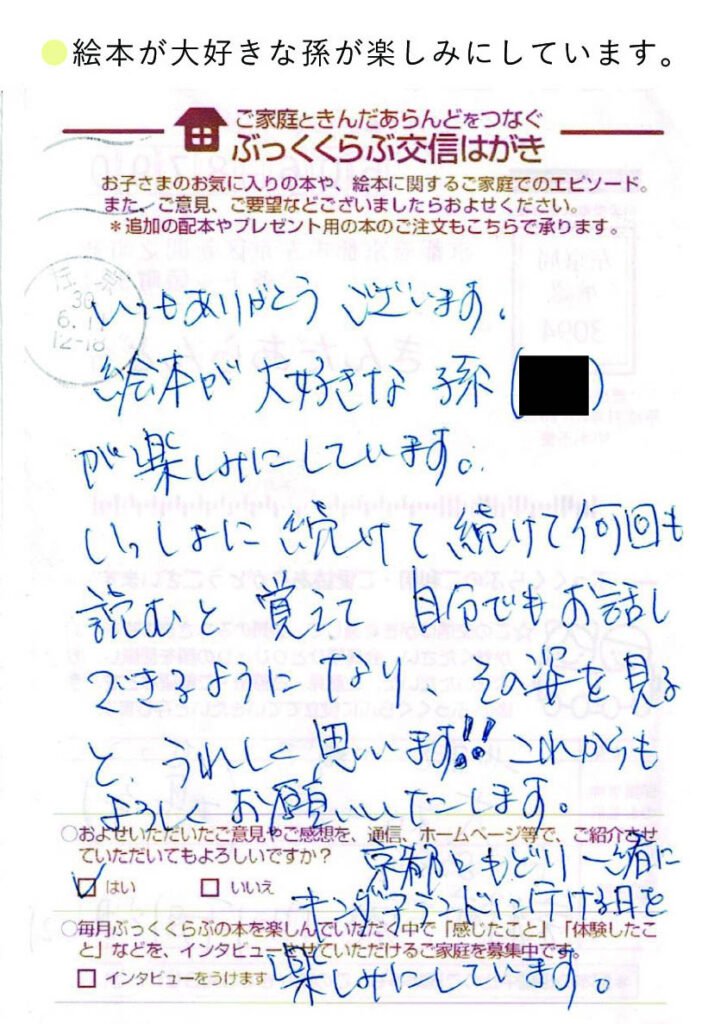 絵本が大好きな孫が楽しみにしています。
ご家庭ときんだあらんどをつなぐ
ぶっくくらぶ交信はがき
お子さまのお気に入りの本や、絵本に関するご家庭でのエピソード。
また、ご意見、ご要望などございましたらおよせください。
*追加の配本やプレゼント用の本のご注文もこちらで承ります。
30
6.11
12-18
いつもありがとうございます。
絵本が大好きな孫(
)
が楽しみにしています。
いっしょに続けて続けて何回も
読むと覚えて自分でもお話し
できるようになり、その姿を見る
と、うれしく思います!!これからも
よろしくお願いいたします。
○およせいただいたご意見やご感想を、通信、ホームページ等で、ご紹介させ
ていただいてもよろしいですか?
はい いいえ
京都にもどり一緒に
キンダーランドに行ける日を
○毎月ぶっくくらぶの本を楽しんでいただく中で「感じたこと」「体験したこ
と」などを、インタビューさせていただけるご家庭を募集中です。
インタビューをうけます
楽しみにしています。